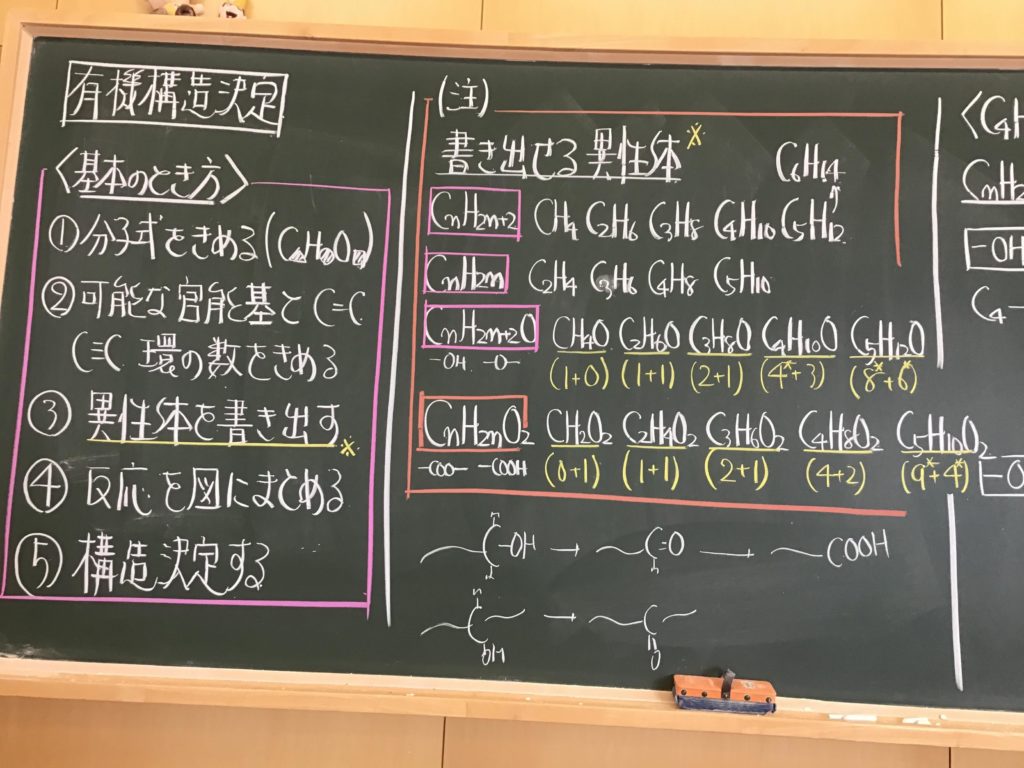 有機構造決定
〈基本のとき方〉
①分子式をきめる(C□H□O□)
②可能な官能基とC=C
C≡C 環の数をきめる
③ 異性体を書き出す※
④ 反応を図にまとめる
⑤ 構造決定する
(注)
書き出せる異性体※ C6H14
CnH2n+2 CH4 C2H6 C3H8 C4H10 C5H12
CnH2n C2H4 C3H6 C4H8 C5H10
CnH2n+2O CH4O C2H6O C3H8O C4H10O C5H12O
-OH -O- (1+0) (1+1) (2+1) (4*+3) (8*+6*)
CnH2nO2 CH2O2 C2H4O2 C3H6O2 C4H8O2 C5H10O2
-COO- -COOH (0+1) (1+1) (2+1) (4+2) (9*+4*)
H
C-OH → C=O → COOH
H H
H
C → C
OH O
〈C4H
CnH2
-OH
C4-